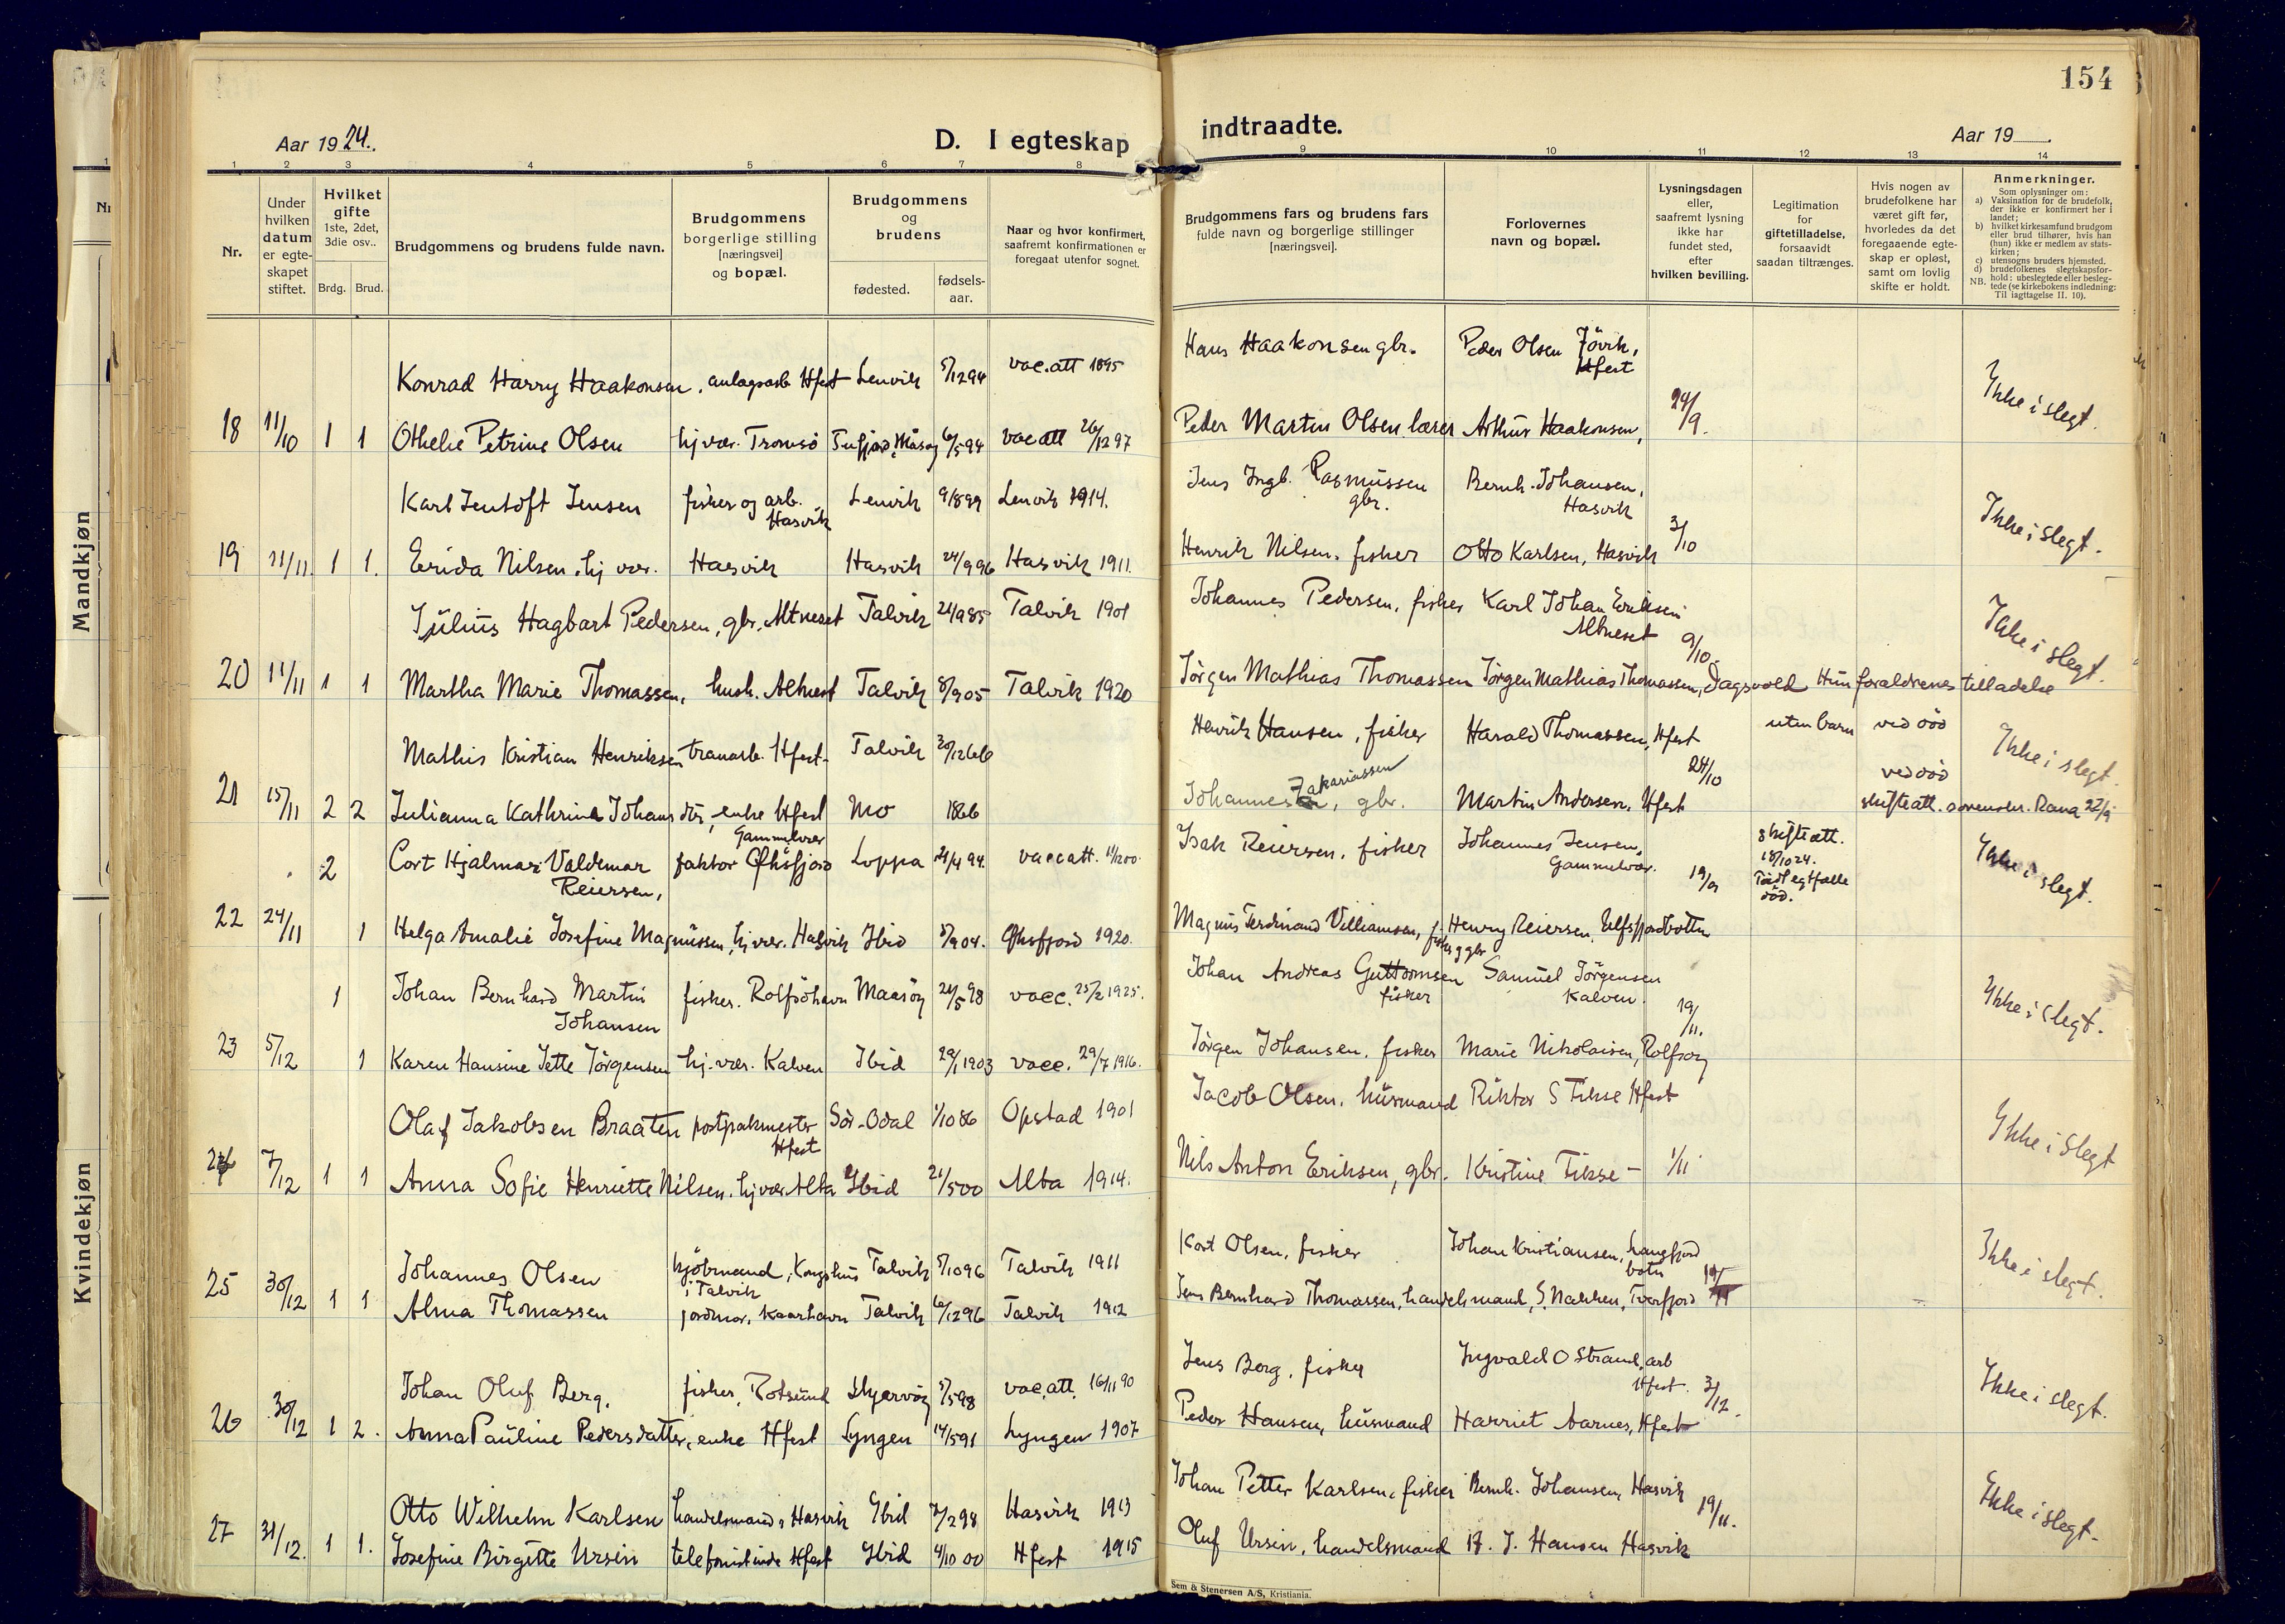 154
Aar 1924.
D. I egteskap
indtraadte.
Aar 19
1 2 3 4 5 6 7 8 9 10 11 12 13 14
Nr.
Under hvilken datum er egteskapet stiftet.
Hvilket gifte
1ste, 2det, 3die osv..
Brdg. Brud.
Brudgommens og brudens fulde navn.
Brudgommens borgerlige stilling [næringsvei] og bopæl.
Brudgommens og brudens
fødested.
fødsels-aar.
Naar og hvor konfirmert, saafremt konfirmationen er foregaat utenfor sognet.
Brudgommens fars og brudens fars fulde navn og borgerlige stillinger [næringsvei].
Forlovernes navn og bopæl.
Lysningsdagen eller, saafremt lysning ikke har fundet sted, efter hvilken bevilling.
Legitimation for giftetilladelse, forsaavidt saadan tiltrænges.
Hvis nogen av brudefolkene har været gift før, hvorledes da det foregaaende egteskap er opløst, samt om lovlig skifte er holdt.
Anmerkninger.
Som oplysninger om:
a) Vaksination for de brudefolk, der ikke er konfirmert her i landet;
b) hvilket kirkesamfund brudgom eller brud tilhører, hvis han (hun) ikke er medlem av statskirken;
c) utensogns bruders hjemsted.
d) brudefolkenes slegtskapsforhold: ubeslegtede eller beslegtede (se kirkebokens indledning:
NB. Til iagttagelse II. 10).
Konrad Harry Haakonsen, anlagsarb Hfest Lenvik 5/12 94 vac.att 1895 Hans Haakonsen gbr. Peder Olsen Jövik, Hfest
18 11/10 1 1 Othelie Petrine Olsen hj vær. Tromsö Tufjord, Måsøy 6/5 94 vac att 26/12 97 Peder Martin Olsen, lærer Arthur Haakonsen, 24/9. Ikke i slegt.
Karl Jentoft Jensen fisker og arb. Hasvik Lenvik 9/8 99 Lenvik 1914. Jens Ingb. Rasmussen gbr. Bernh. Johansen, Hasvik
19 21/11. 1 1. Erida Nilsen, hj vær. Hasvik Hasvik 24/9 96 Hasvik 1911. Henrik Nilsen, fisker Otto Karlsen, Hasvik 3/10 Ikke i slegt.
Julius Hagbart Pedersen, gbr, Altneset Talvik 24/9 85 Talvik 1901 Johannes Pedersen, fisker Karl Johan Eriksen Altneset
20 11/11 1 1 Martha Marie Thomassen, hush. Altnest Talvik 8/9 05 Talvik 1920 Jörgen Mathias Thomassen Jörgen Mathias Thomassen, Dagsvold 9/10. Hun foraldrenes tilladelse Ikke i slegt.
Mathis Kristian Henriksen tranarb. Hfest Talvik 30/12 66 Henrik Hansen, fisker Harald Thomassen, Hfest uten barn ved död
21 15/11 2 2 Julianna Kathrine Johans dtr, enke Hfest Mo 1866 Johannes Zakariassen, gbr. Martin Andersen, Hfest 24/10 ved död skifteatt. sorenskr. Rana 22/9 Ikke i slegt.
2 Cort Hjalmar Valdemar Reiersen, faktor Gammelvær Öksfjord Loppa 24/4 94. vacc att. 11/12 00. Isak Reiersen, fisker Johannes Jensen, Gammelvær. 19/9 skifteatt. 18/10 24. död. Ikke i slegt.
22 24/11 1 Helga Amalie Josefine Magnussen, hj vær. Hasvik Ibid 5/9 04. Öksfjord 1920. Magnus Ferdinand Villiamsen, fisker g gbr Henry Reiersen,
1 Johan Bernhard Martin Johansen fisker. Rolfsöhavn Maasöy 24/5 98 vacc. 25/2 1925. Johan Andreas Guttormsen fisker Samuel Jörgensen Kalven.
23 5/12 1 Karen Hansine Jette Jörgensen hj.vær. Kalven Ibid 29/1 1903 vacc. 29/7 1916. Jörgen Johansen, fisker Marie Nikolaisen, Rolfsöy 19/11. Ikke i slegt.
Olaf Jakobsen Braaten postpakmester Hfest Sör-Odal 1/10 86 Opstad 1901 Jacob Olsen, husmand Riktor S Tikse Hfest
24 7/12 1 1 Anna Sofie Henriette Nilsen, hj vær. Alta Ibid 21/5 00 Alta 1914. Nils Anton Eriksen, gbr. Kristine Tikse - 1/11 Ikke i slegt
Johannes Olsen kjöbmand, Kongshus i Talvik Talvik 5/10 96 Talvik 1911 Kort Olsen, fisker Johan Kristiansen, Langfjordbotn
25 30/12 1 1 Alma Thomassen jordmor, Kaarhavn Talvik 6/12 96 Talvik 1912 Jens Bernhard Thomassen, handelsmand, S. Nakken, Tverfjord Ikke i slegt.
Johan Oluf Berg, fisker, Rotsund Skjervöy 5/5 98 vac.att. 16/11 90 Jens Berg, fisker Ingvald O Strand, arb Hfest.
26 30/12 1 2. Anna Pauline Pedersdatter, enke Hfest Lyngen 14/5 91 Lyngen 1907 Peder Hansen, husmand Harriet Aarnes, Hfest 3/12. Ikke i slegt.
Otto Wilhelm Karlsen handelsmand, Hasvik Ibid 2/2 98 Hasvik 1913 Johan Petter Karlsen, fisker Bernh. Johansen, Hasvik
27 31/12. 1 1. Josefine Birgitte Ursin telefonistinde Hfest Ibid 4/10 00 Hfest 1915 Oluf Ursin, handelsmand H. J. Hansen Hasvik 19/11. Ikke i slegt.
Sem & Stenersen A/S, Kristiania.
Mandkjøn
Kvindekjøn